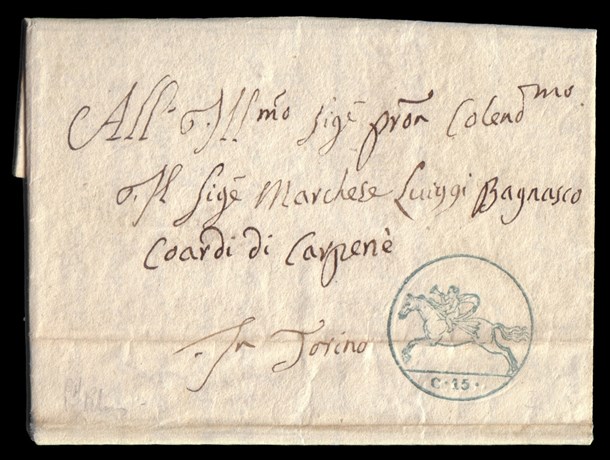 All' Ill.mo Sig.r Pron Colend.mo
Il Sig.r Marchese Luiggi Bagnasco
Coardi di Carpenè
In Torino
C. 15.